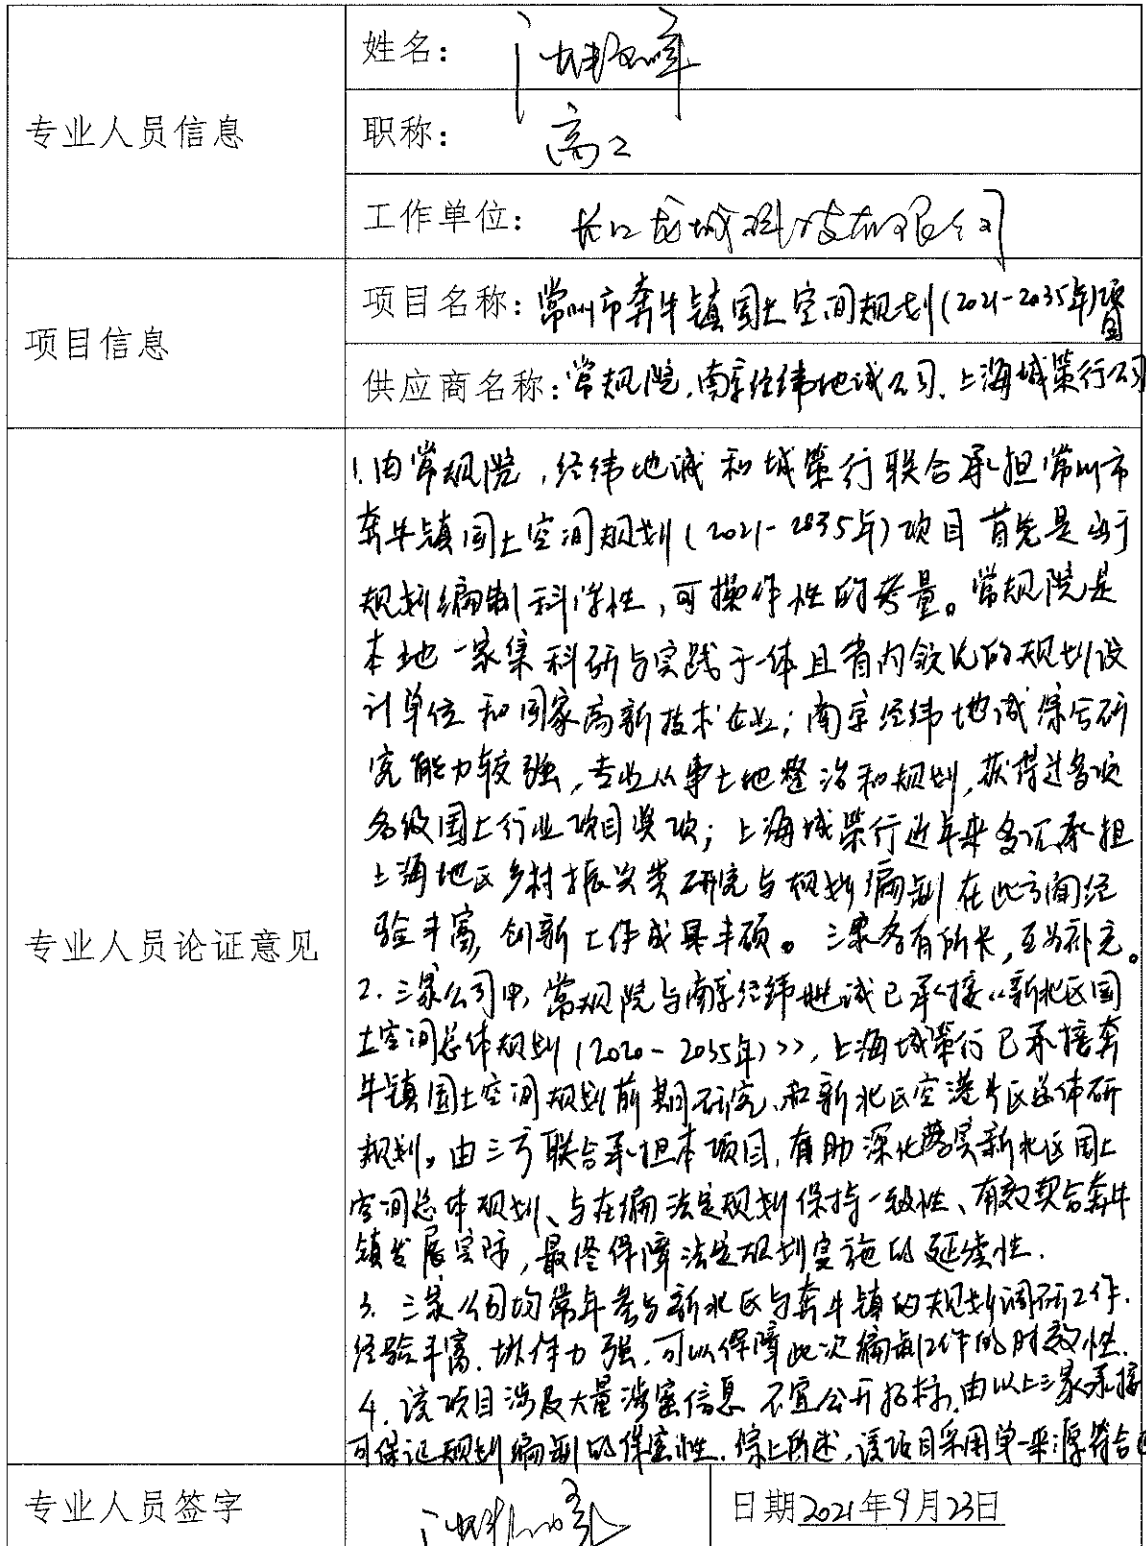 专业人员信息
姓名：
职称：高工
工作单位：长江龙城科技有限公司
项目信息
项目名称：常州市奔牛镇国土空间规划(2021-2035年)项目
供应商名称：常规院、南京经纬地诚公司、上海城策行公司
专业人员论证意见
1.由常规院，经纬地诚和城策行联合承担常州市
奔牛镇国土空间规划(2021-2035年)项目首先是出于
规划编制科学性，可操作性的考量。常规院是
本地一家集科研与实践于一体且省内领先的规划设
计单位和国家高新技术企业；南京经纬地诚综合研
究能力较强，专业从事土地整治和规划，获得过各项
各级国土行业项目奖项；上海城策行近年来多次承担
上海地区乡村振兴类研究与规划编制在此方面经
验丰富，创新工作成果丰硕。三家各有所长，互为补充。
2.三家公司中，常规院与南京经纬地诚已承接《新北区国
土空间总体规划(2020-2035年)》，上海城策行已承接奔
牛镇国土空间规划前期研究、和新北区空港片区总体研
规划。由三方联合承担本项目，有助深化落实新北区国土
空间总体规划、与在编法定规划保持一致性、有效契合奔牛
镇发展实际，最终保障法定规划实施的延续性.
3.三家公司均常年参与新北区与奔牛镇的规划调研工作.
经验丰富.协作力强.可以保障此次编制工作的时效性.
4.该项目涉及大量涉密信息不宜公开招标.由以上三家承接
可保证规划编制的保密性.综上所述，该项目采用单一来源符合
专业人员签字
日期2021年9月23日